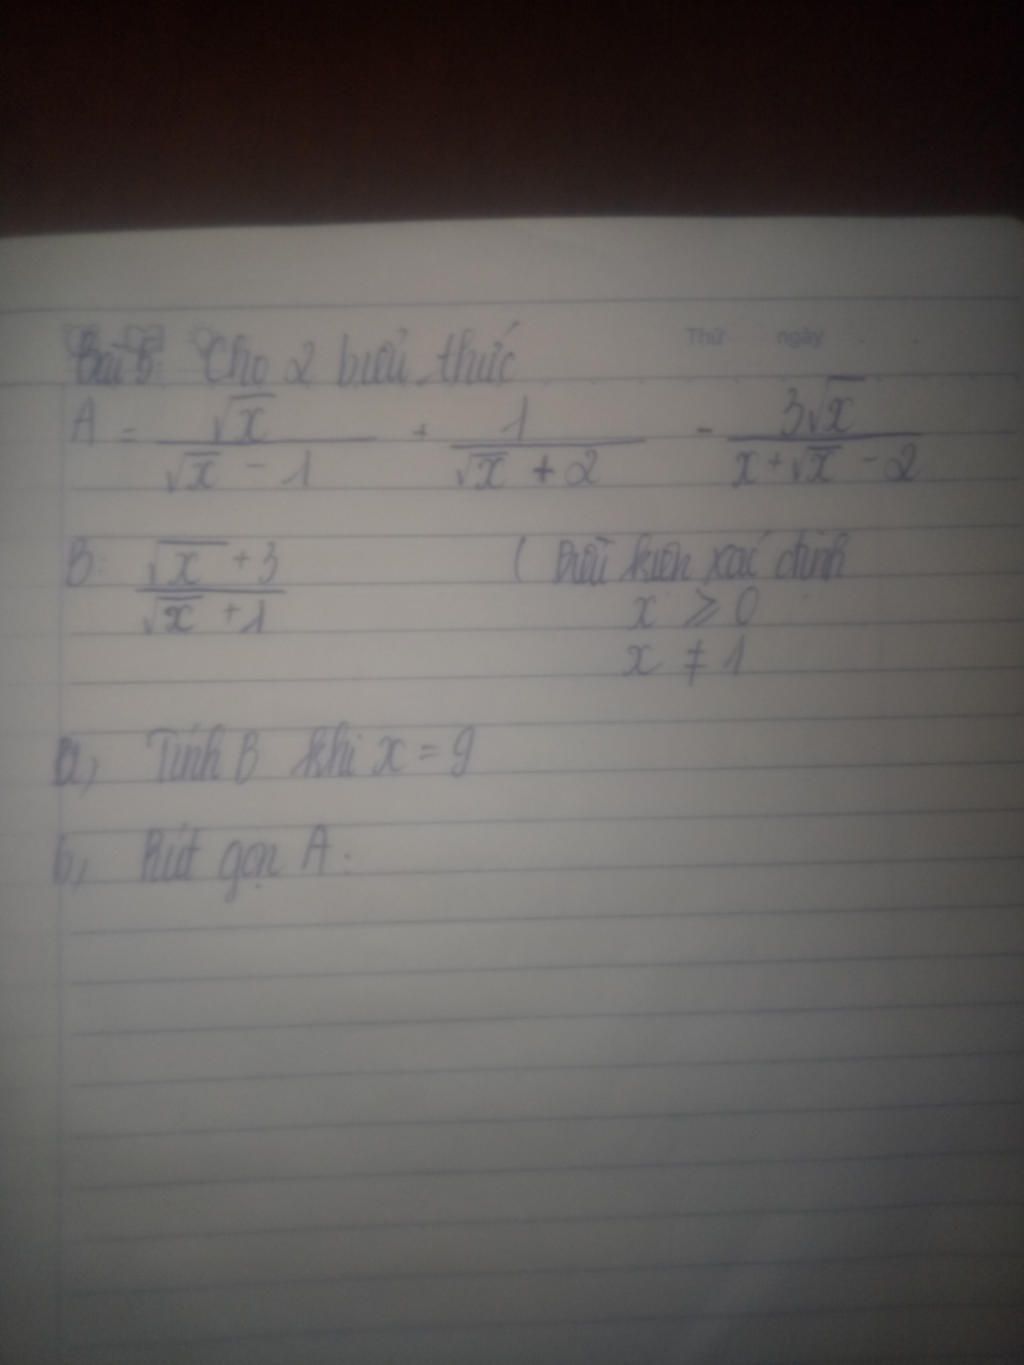 Bài 5: Cho 2 biểu thức
Thứ ngày
A = √x / (√x - 1) + 1 / (√x + 2) - 3√x / (x + √x - 2)
B: (√x + 3) / (√x + 1) ( Điều kiện xác định
x ≥ 0
x ≠ 1
a, Tính B khi x = 9
b, Rút gọn A.